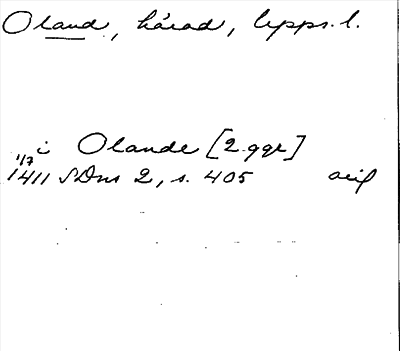 Oland, härad, Upps. l.
i Olande [2 ggr]
1/7 1411 SDns 2, s. 405 avil